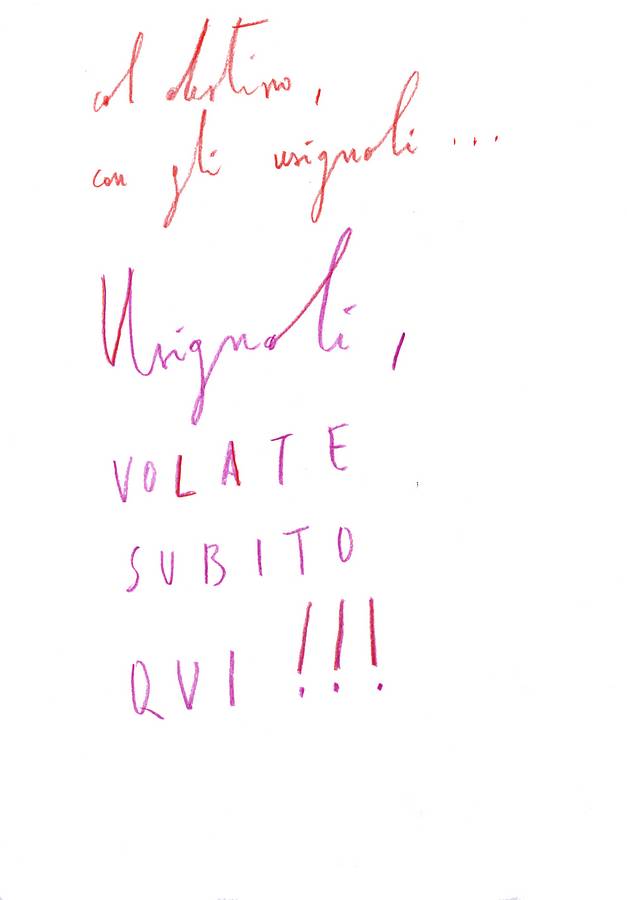 col destino,
con gli usignoli...
Usignoli,
VOLATE
SUBITO
QVI !!!